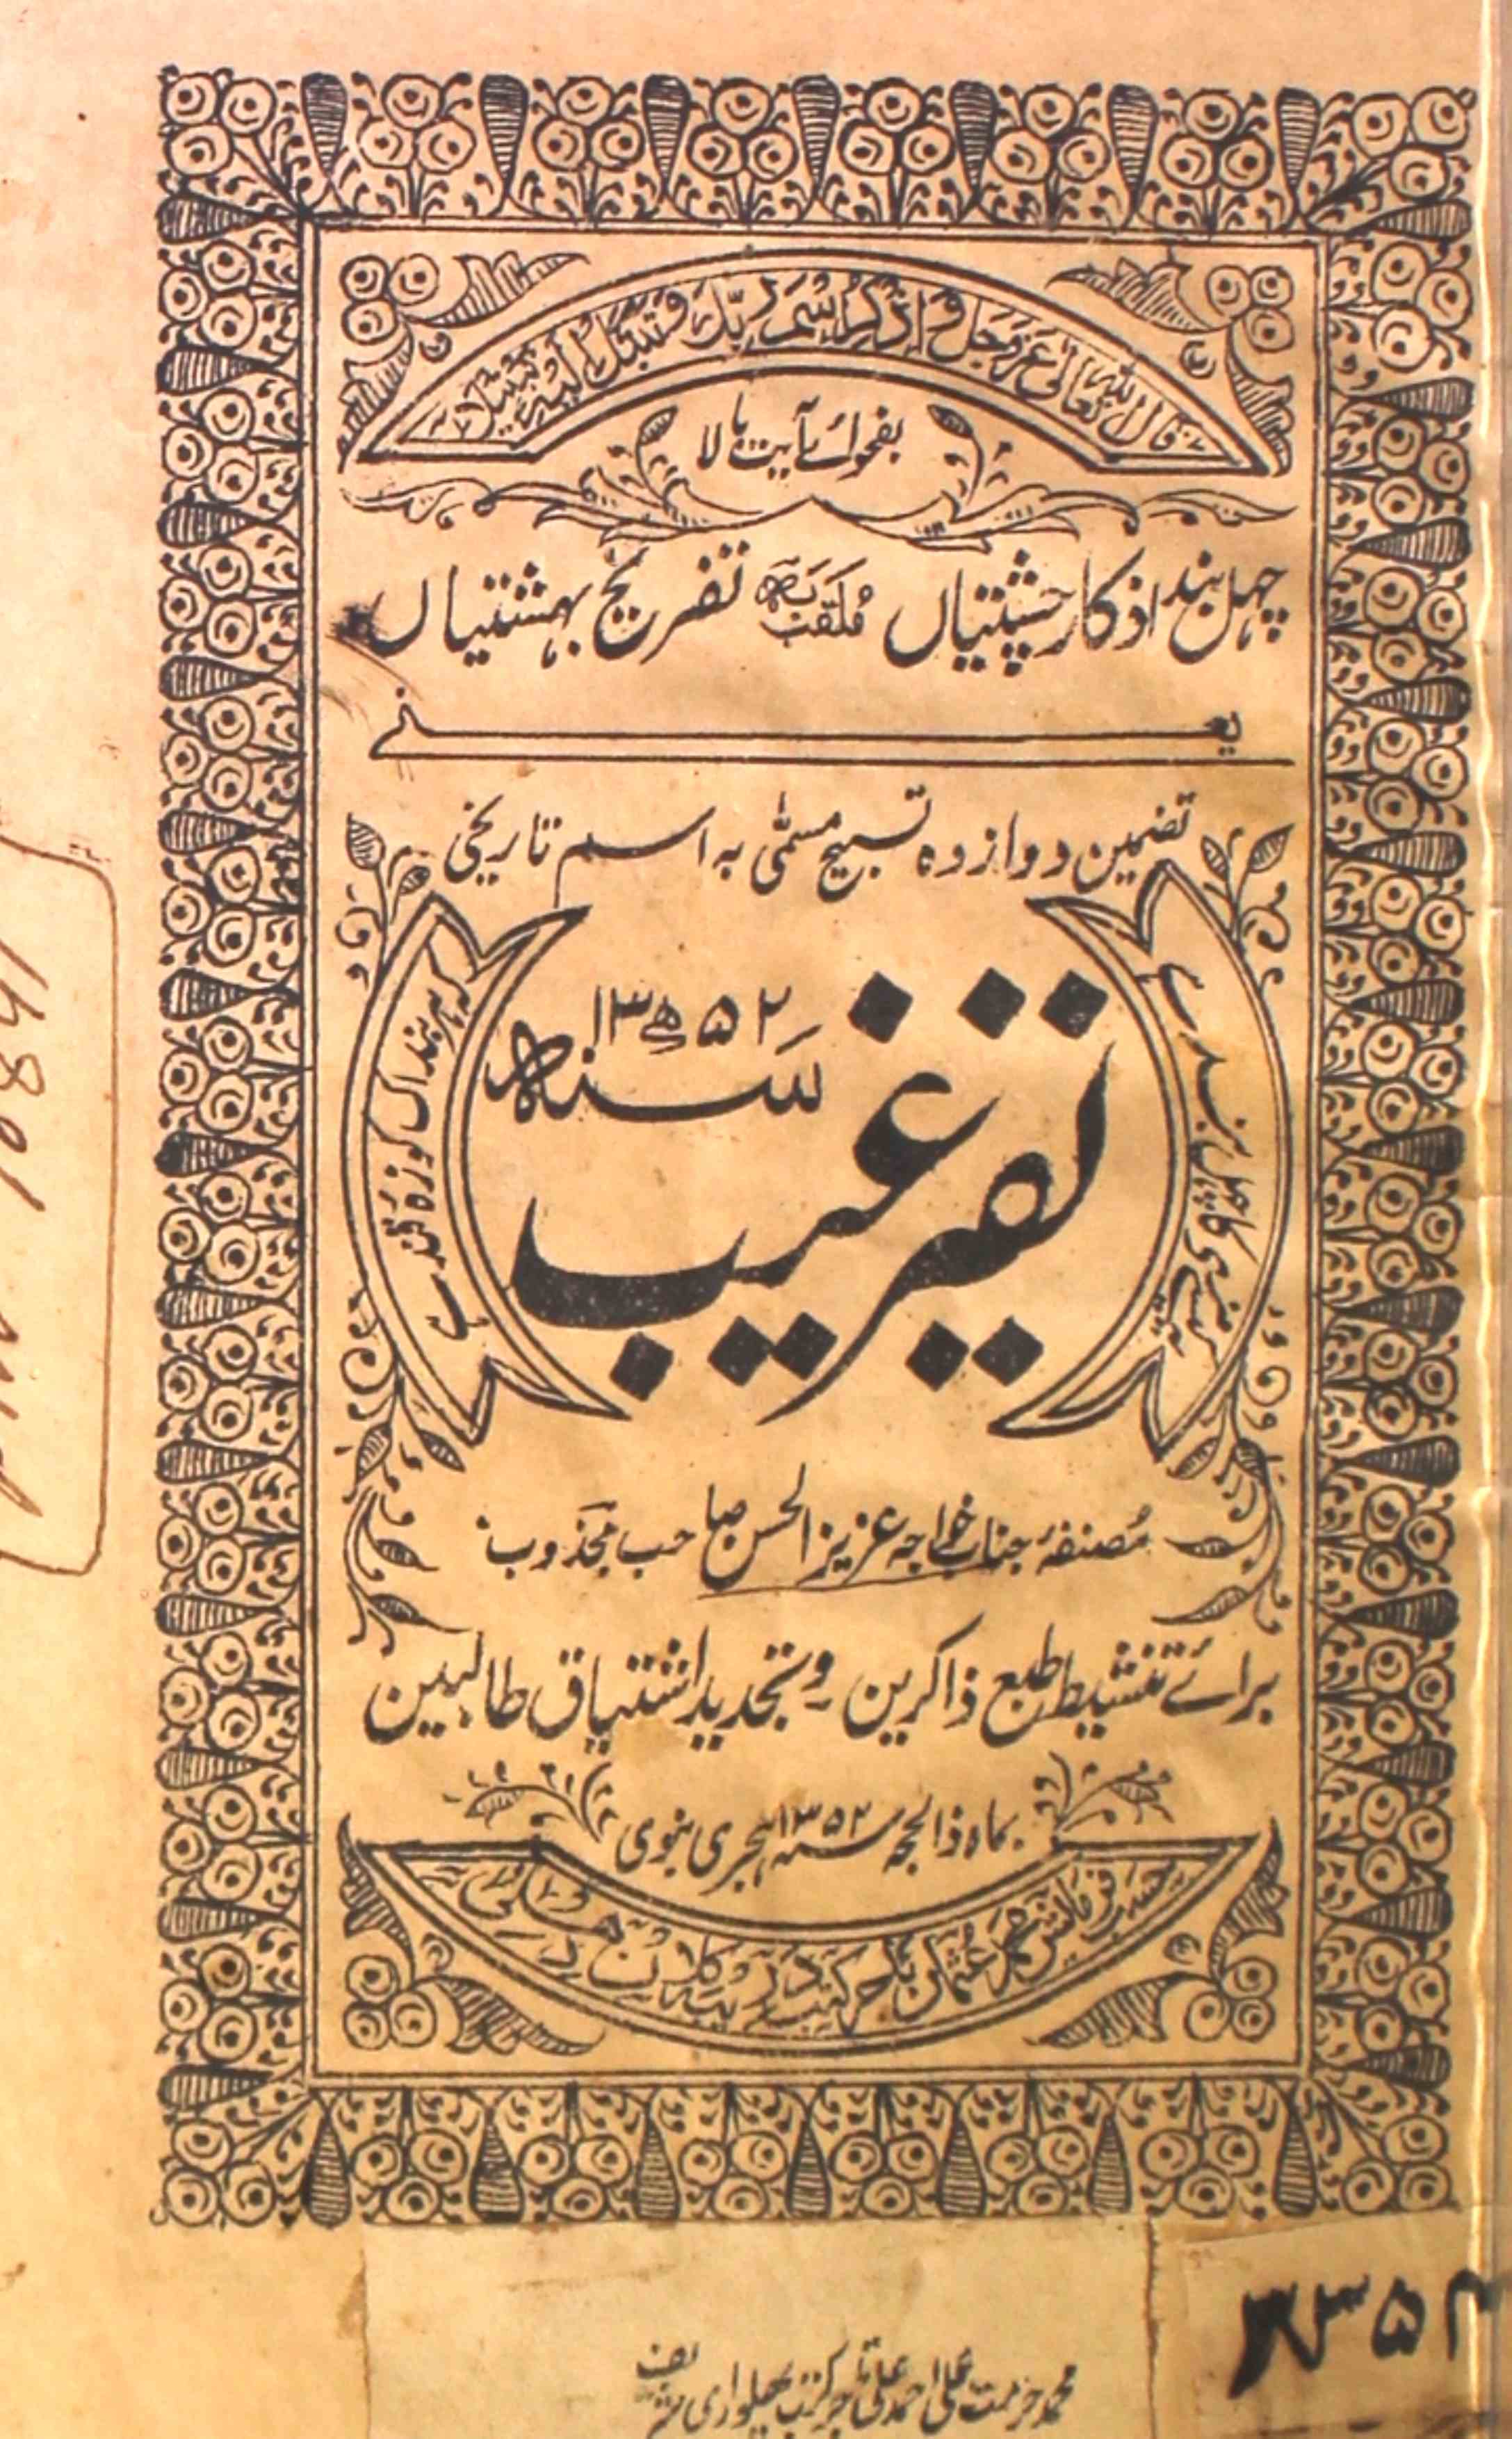 قال اللہ تعالیٰ عز وجل وَاذْكُرِ اسْمَ رَبِّكَ وَتَبَتَّلْ إِلَيْهِ تَبْتِيلًا
بفحوائے آیت بالا
چہل بند اذکار چشتیاں مُلَقَّب بہ تفریح بہشتیاں
یعنی
تضمین دوازدہ تسبیح مسمّٰی بہ اسم تاریخی
نفیر غیب
سنہ ۱۳۵۲ھ
کہ ہر بند آں کوزہ قند ہے
مُصنفہٗ جناب خواجہ عزیز الحسن صاحب مجذوب
برائے تنشیط طبع ذاکرین و تجدید اشتیاق طالبین
بماہ ذالحجہ سنہ ۱۳۵۲ ہجری نبوی
حسب فرمائش محمد عثمان تاجر کتب دریبہ کلاں دہلی
محمد حرمت علی احمد علی تاجر کتب پھلواری شریف